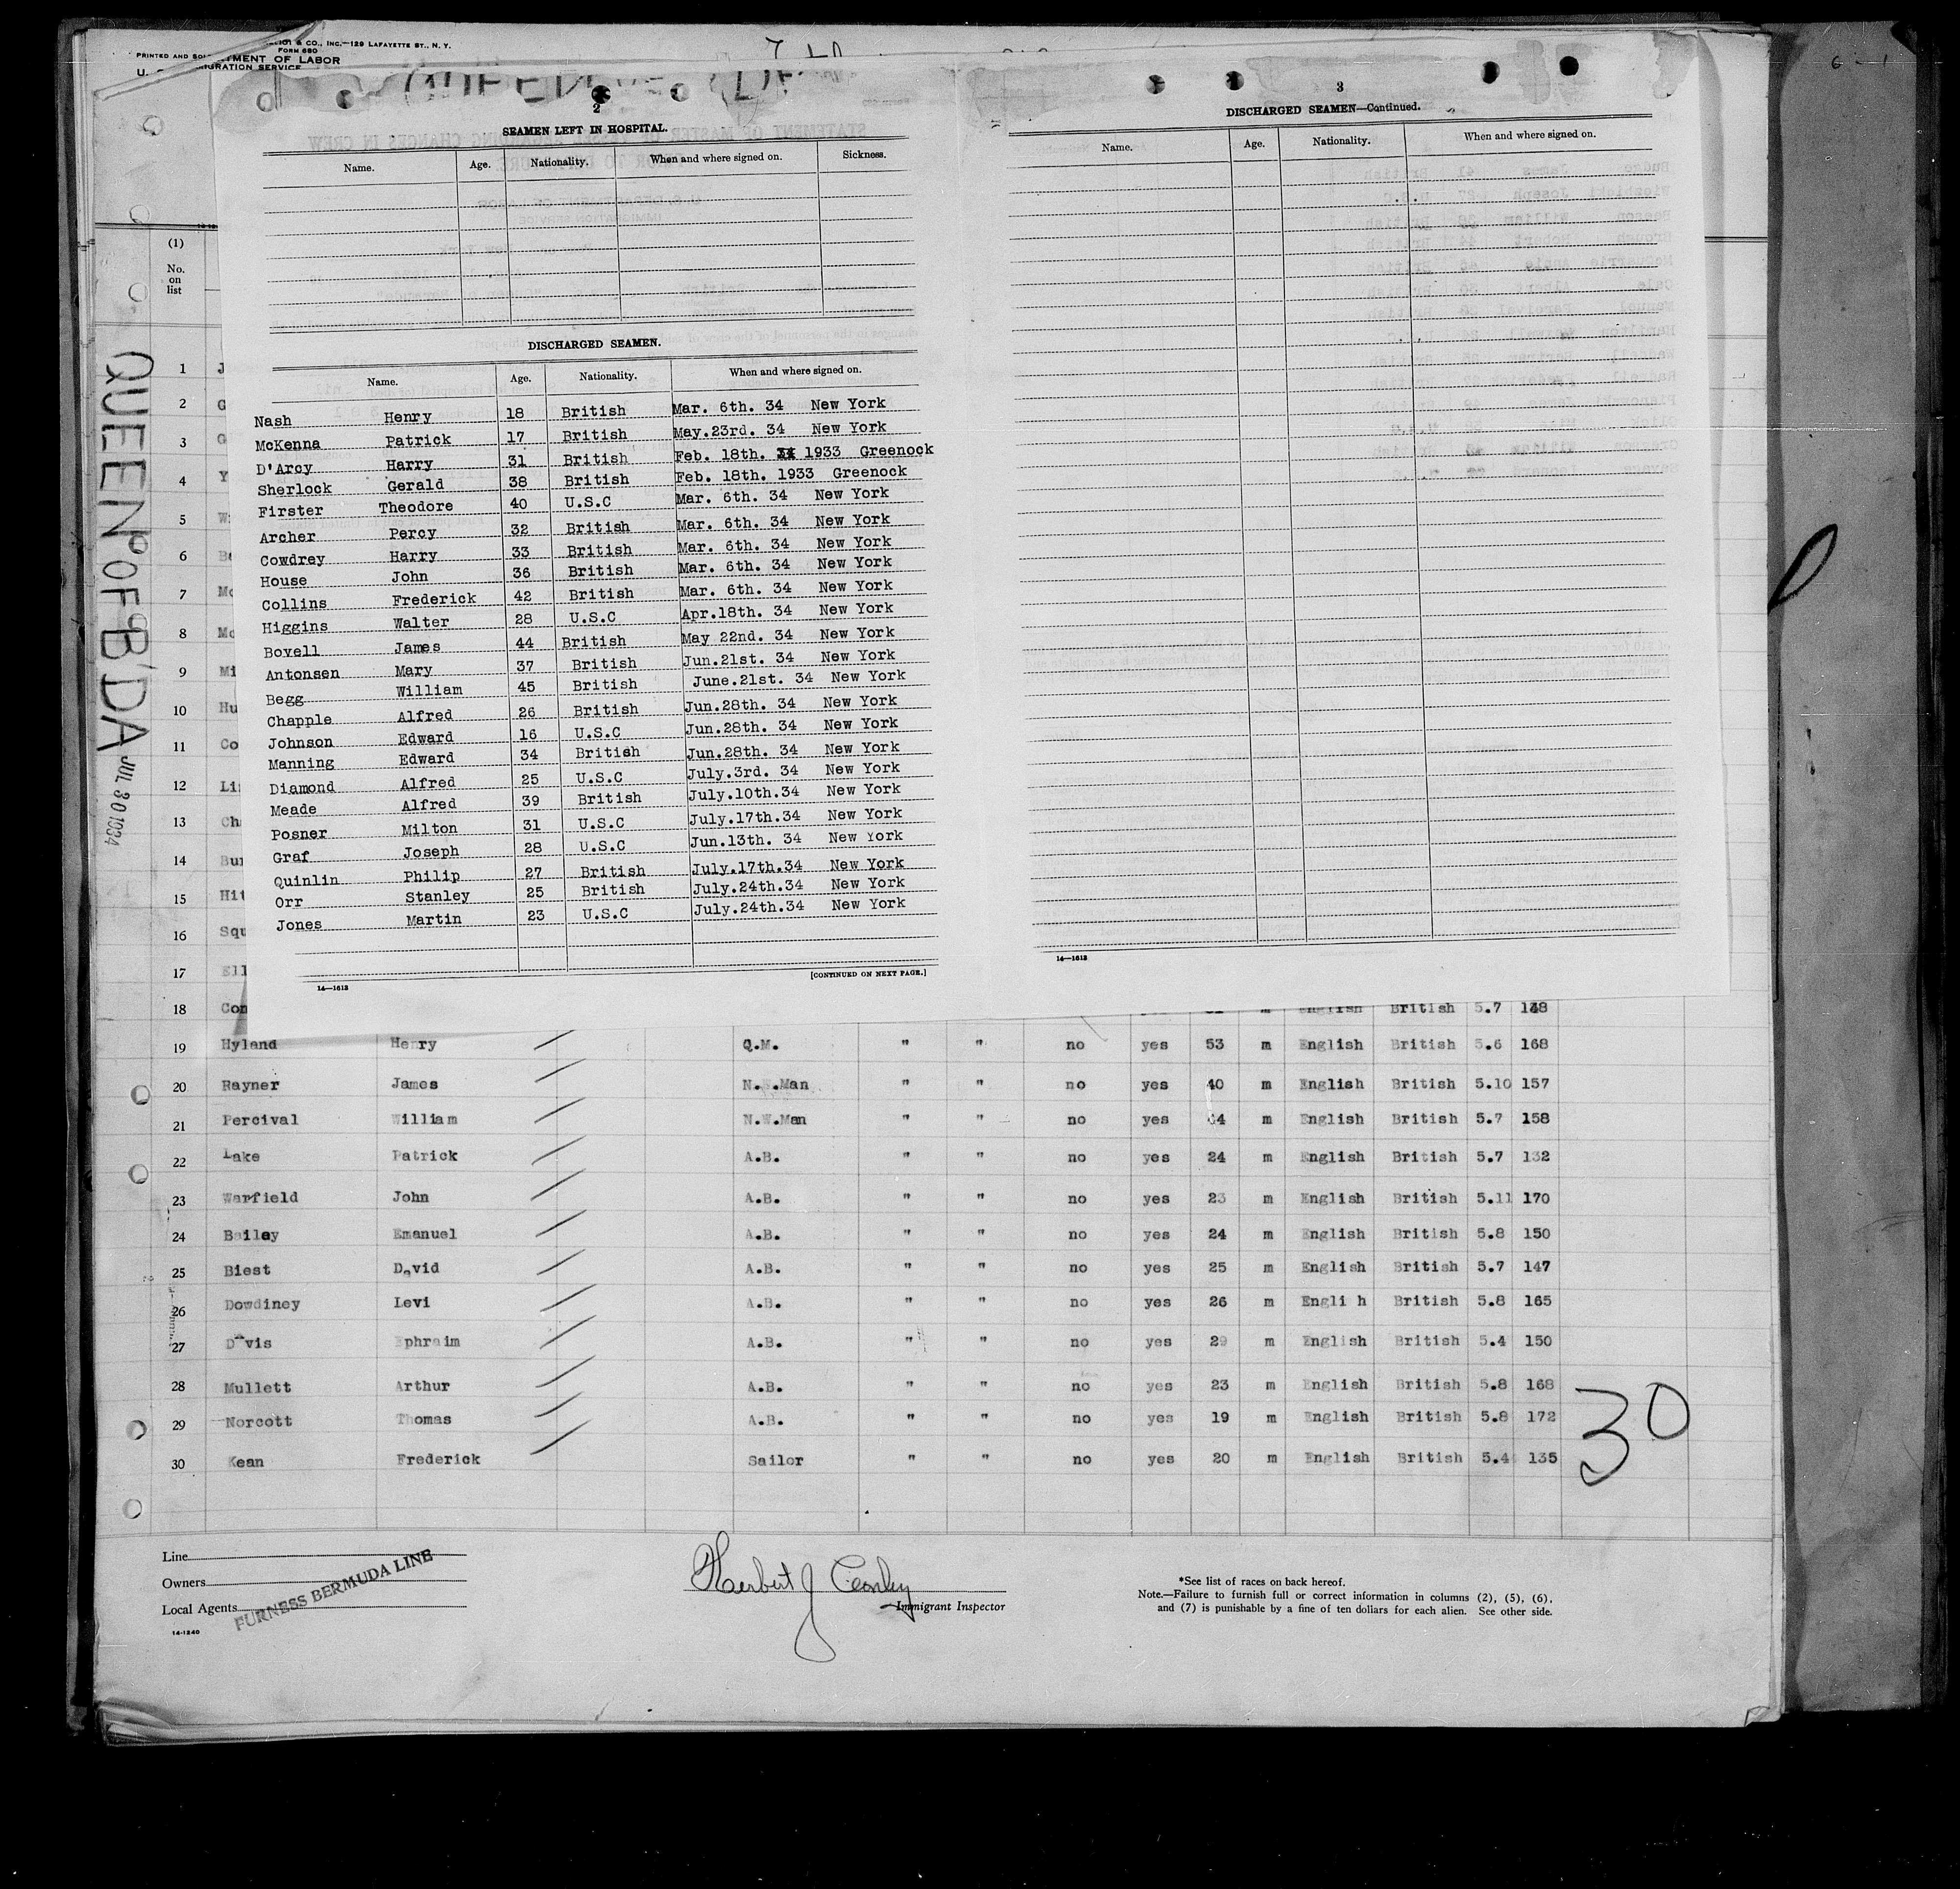 & CO., INC.—129 LAFAYETTE ST., N. Y.
FORM 680
PRINTED AND
DEPARTMENT OF LABOR
IMMIGRATION SERVICE
2
SEAMEN LEFT IN HOSPITAL.
Name. Age. Nationality. When and where signed on. Sickness.
DISCHARGED SEAMEN.
Name. Age. Nationality. When and where signed on.
Nash Henry 18 British Mar. 6th. 34 New York
McKenna Patrick 17 British May.23rd. 34 New York
D'Arcy Harry 31 British Feb. 18th. 1933 Greenock
Sherlock Gerald 38 British Feb. 18th. 1933 Greenock
Firster Theodore 40 U.S.C Mar. 6th. 34 New York
Archer Percy 32 British Mar. 6th. 34 New York
Cowdrey Harry 33 British Mar. 6th. 34 New York
House John 36 British Mar. 6th. 34 New York
Collins Frederick 42 British Mar. 6th. 34 New York
Higgins Walter 28 U.S.C Apr.18th. 34 New York
Bovell James 44 British May 22nd. 34 New York
Antonsen Mary 37 British Jun.21st. 34 New York
Begg William 45 British June.21st. 34 New York
Chapple Alfred 26 British Jun.28th. 34 New York
Johnson Edward 16 U.S.C Jun.28th. 34 New York
Manning Edward 34 British Jun.28th. 34 New York
Diamond Alfred 25 U.S.C July.3rd. 34 New York
Meade Alfred 39 British July.10th.34 New York
Posner Milton 31 U.S.C July.17th.34 New York
Graf Joseph 28 U.S.C Jun.13th. 34 New York
Quinlin Philip 27 British July.17th.34 New York
Orr Stanley 25 British July.24th.34 New York
Jones Martin 23 U.S.C July.24th.34 New York
[CONTINUED ON NEXT PAGE.]
14—1613
3
DISCHARGED SEAMEN—Continued.
Name. Age. Nationality. When and where signed on.
14—1613
QUEEN OF B'DA JUL 30 1934
(1)
No.
on
list
1
2
3
4
5
6
7
8
9
10
11
12
13
14
15
16
17
18 British 5.7
19 Hyland Henry Q.M. " " no yes 53 m English British 5.6 168
20 Rayner James N.W.Man " " no yes 40 m English British 5.10 157
21 Percival William N.W.Man " " no yes m English British 5.7 158
22 Lake Patrick A.B. " " no yes 24 m English British 5.7 132
23 Warfield John A.B. " " no yes 23 m English British 5.11 170
24 Bailey Emanuel A.B. " " no yes 24 m English British 5.8 150
25 Biest David A.B. " " no yes 25 m English British 5.7 147
26 Dowdiney Levi A.B. " " no yes 26 m Engli h British 5.8 165
27 Davis Ephraim A.B. " " no yes 29 m English British 5.4 150
28 Mullett Arthur A.B. " " no yes 23 m English British 5.8 168
29 Norcott Thomas A.B. " " no yes 19 m English British 5.8 172
30 Kean Frederick Sailor " " no yes 20 m English British 5.4 135
30
Line
Owners
Local Agents
FURNESS BERMUDA LINE
14-1240
Herbert J
Immigrant Inspector
*See list of races on back hereof.
Note.—Failure to furnish full or correct information in columns (2), (5), (6),
and (7) is punishable by a fine of ten dollars for each alien. See other side.